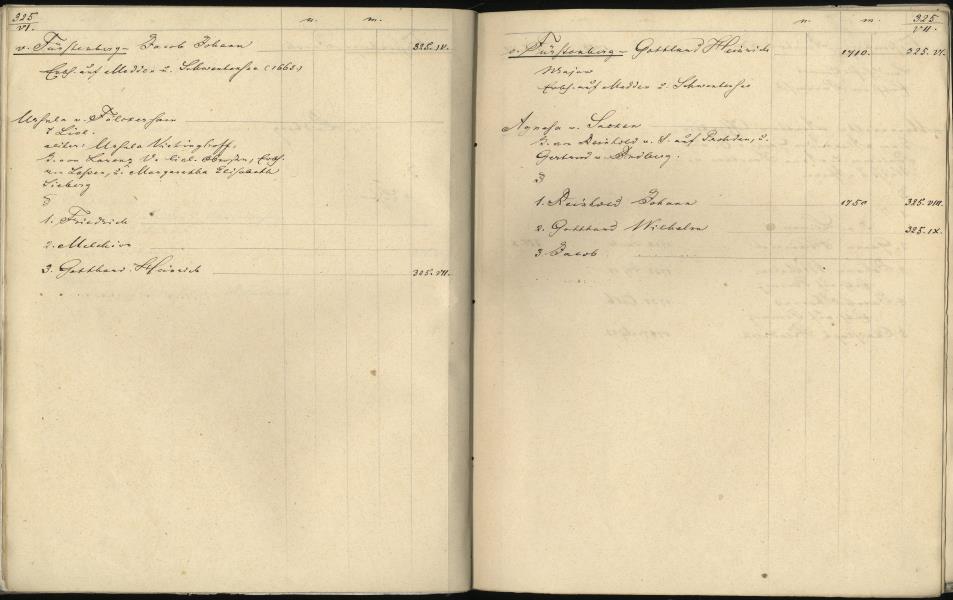 325
VI.
n. m.
v. Fürstenberg - Jacob Johann 325. IV.
Erbh. auf Medden u. Schwentensee (1665)
Ursula v. Fölckersam
7 Livl.
aliter: Ursula Vietinghoff,
Lorenz V. livl. Erbh.
u. Margaretha Elisabeth
§
1. Friedrich
2. Melchior
3. Gotthard Heinrich 325. VII.
n. m. 325
VII.
v. Fürstenberg - Gotthard Heinrich 1710. 325. VI.
Major
Erbh. auf Medden u. Schwentensee
Agnesa v. Sacken
Reinhold v. S. auf u.
Gertrud v.
§
1. Reinhold Johann 1750 325. VIII.
2. Gotthard Wilhelm 325. IX.
3. Jacob